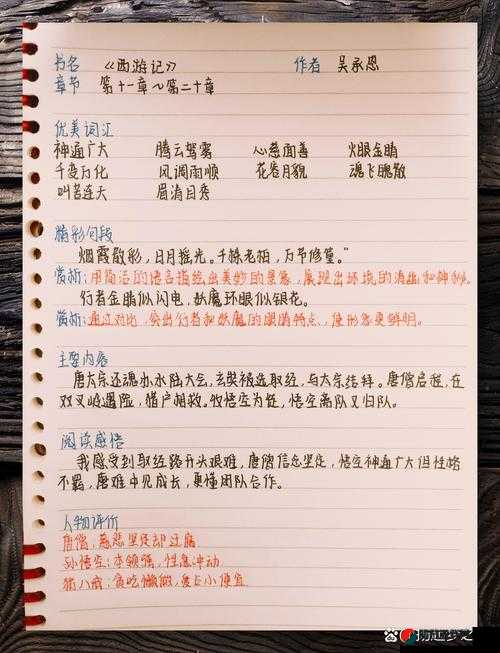 书名 《西游记》 作者 吴承恩
章节 第十一章～第二十章
优美词汇
神通广大 腾云驾雾 心慈面善 火眼金睛
千变万化 风调雨顺 花容月貌 魂飞魄散
叫苦连天 眉清目秀
精彩句段
烟霞散彩，日月摇光。千株老柏，万节修篁。”
赏析:用简洁的语言描绘出美妙的景象，展现出环境的清幽和神秘。
行者金睛似闪电，妖魔环眼似银花。
赏析:通过对比，突出行者和妖魔的眼睛特点，使形象更鲜明。
主要内容
唐太宗还魂办水陆大会，玄奘被选取经，与太宗结拜。唐僧启程，在
双叉岭遇险，猎户相救。收悟空为徒，悟空离队又归队。
阅读感悟
我感受到取经路开头艰难，唐僧信念坚定，悟空神通广大但性格
不羁，磨难中见成长，更懂团队合作。
人物评价
唐僧:慈悲坚定却迂腐
孙悟空:本领强，性急冲动
猪八戒:贪吃懒做，爱占小便宜